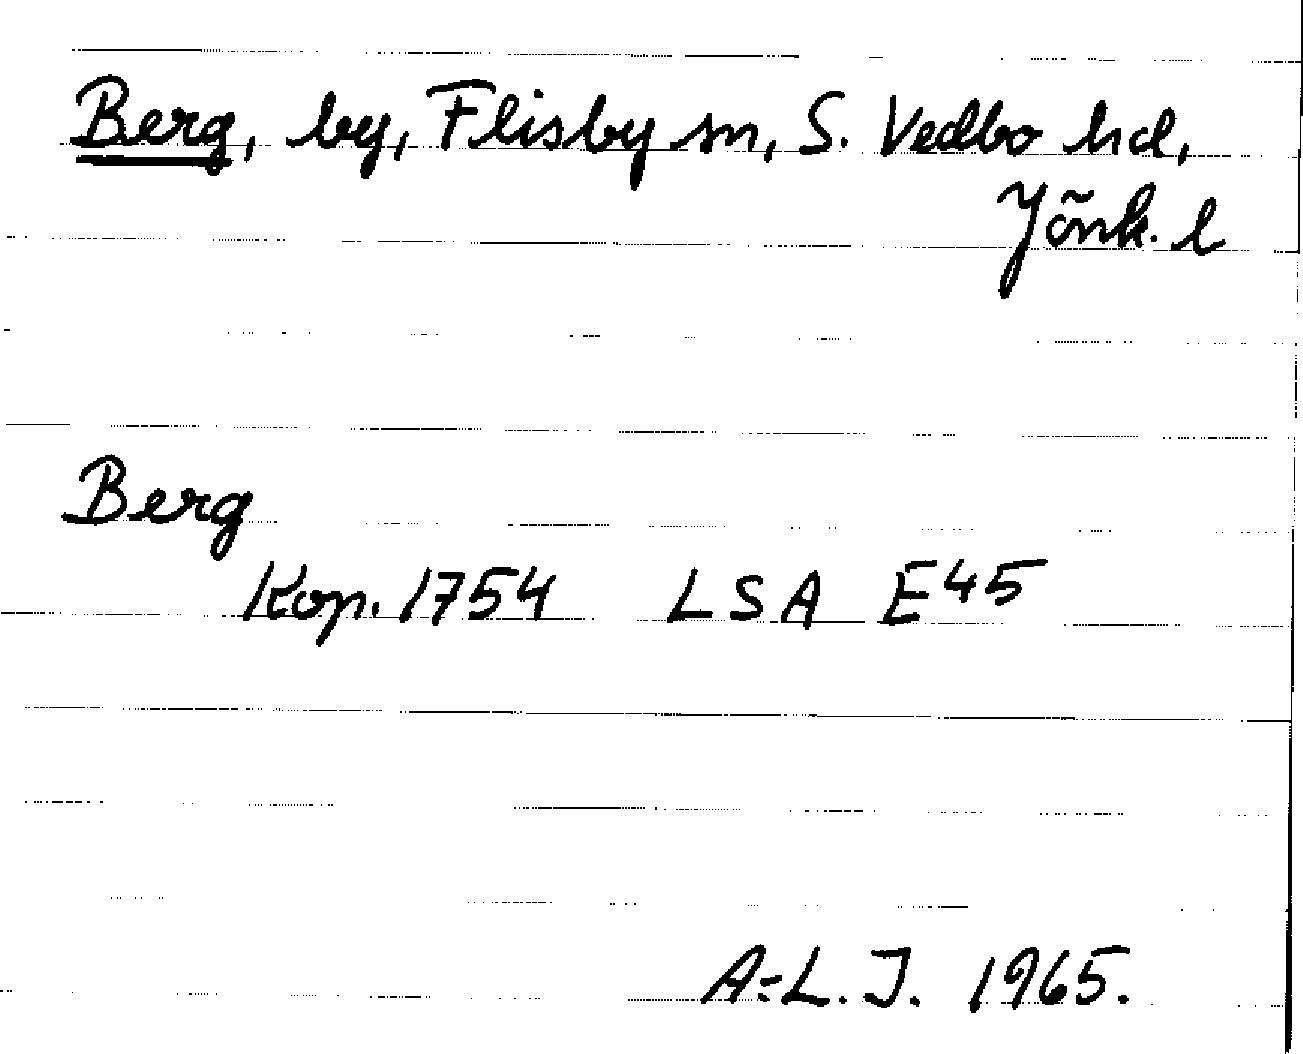 Berg, by, Flisby sn, S. Vedbo hd,
Jönk. l
Berg
Kop. 1754 LSA E45
A-L. J. 1965.